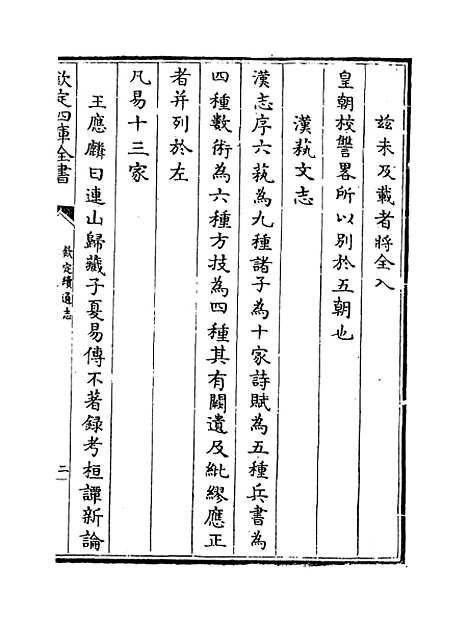 兹未及載者將全入
皇朝校讐畧所以別於五朝也
漢蓺文志
漢志序六蓺為九種諸子為十家詩賦為五種兵書為
四種數術為六種方技為四種其有闕遺及紕繆應正
者并列於左
凡易十三家
王應麟曰連山歸藏子夏易傳不著録考桓譚新論
欽定四庫全書
欽定續通志
二